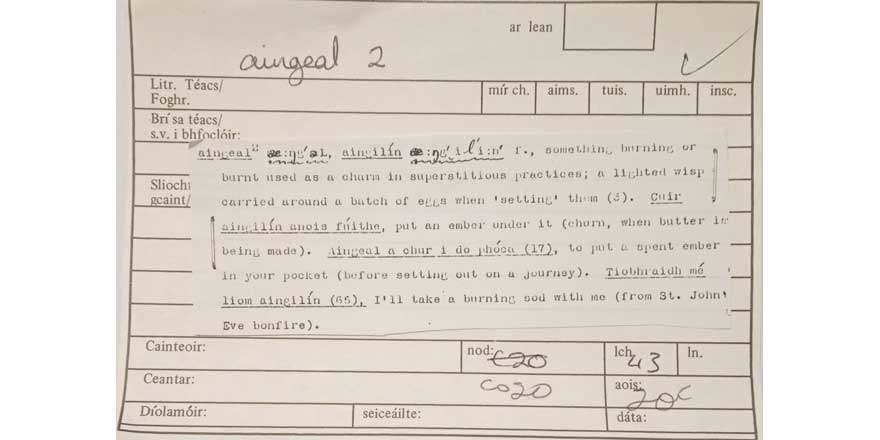 ar lean
aingeal 2
Litr. Téacs/
Foghr.
mír ch. aims. tuis. uimh. insc.
Brí sa téacs/
s.v. i bhfoclóir:
aingeal² æ:ŋg′əL, aingilín æ:ŋg′il′i:n′ f., something burning or
burnt used as a charm in superstitious practices; a lighted wisp
Sliocht
gcaint/
carried around a batch of eggs when 'setting' them (3). Cuir
aingilín anois fúithe, put an ember under it (churn, when butter is
being made). Aingeal a chur i do phóca (17), to put a spent ember
in your pocket (before setting out on a journey). Tiobhraidh mé
liom aingilín (66), I'll take a burning sod with me (from St. John'
Eve bonfire).
Cainteoir: nod: C20 lch. 43 ln.
Ceantar: CO20 aois: 20C
Díolamóir: seiceáilte: dáta: